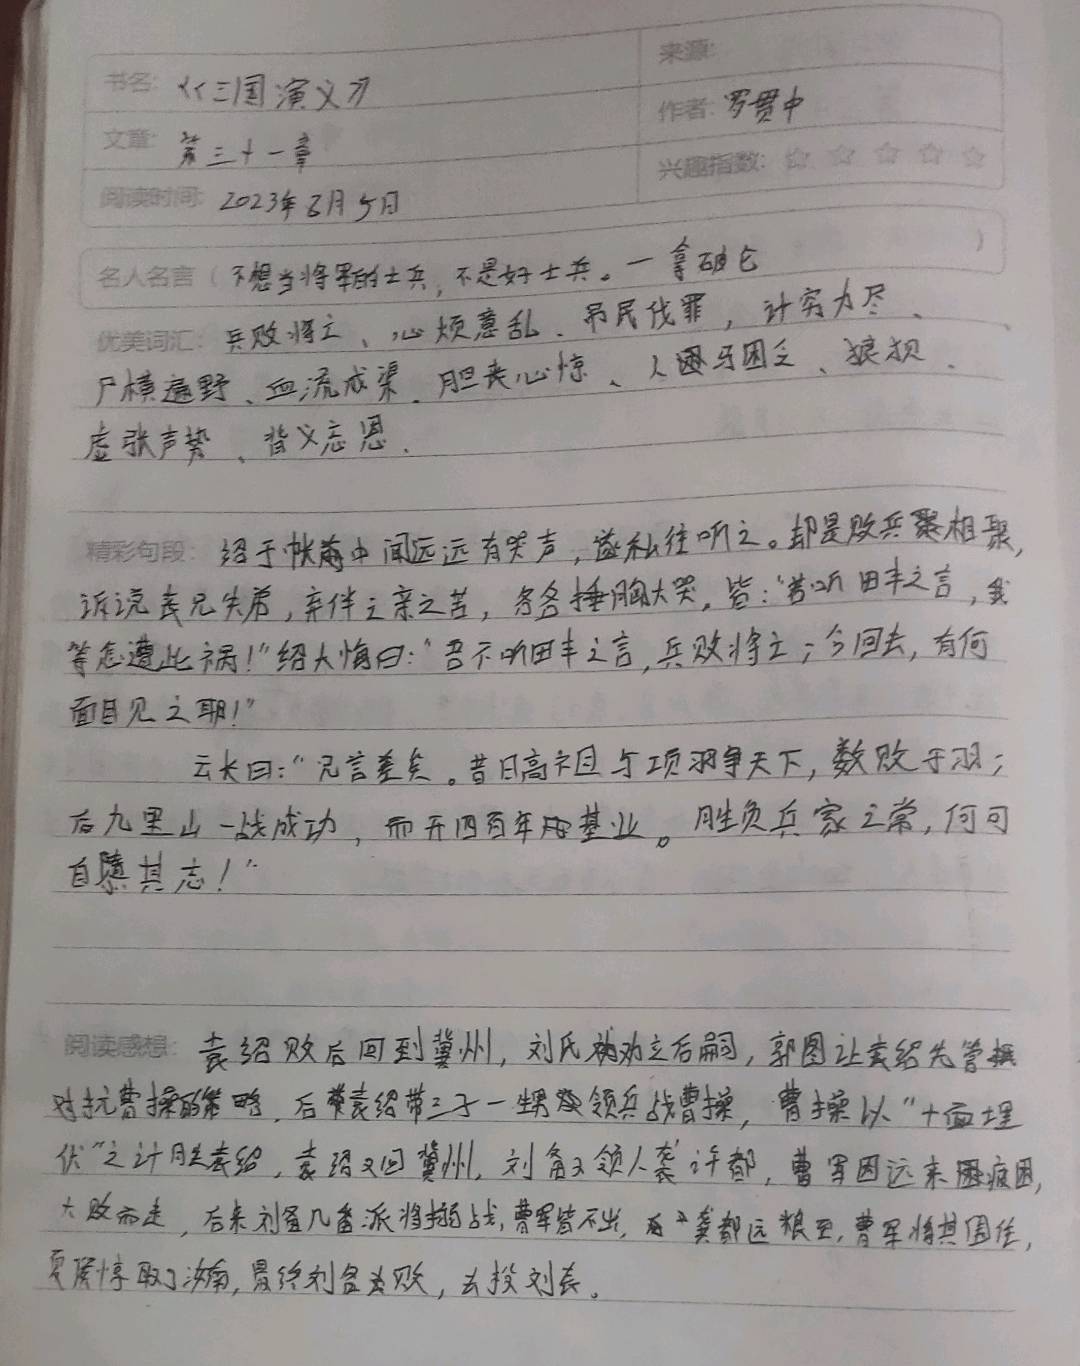 书名: 《三国演义》
来源:
作者: 罗贯中
文章: 第三十一章
兴趣指数: ☆ ☆ ☆ ☆ ☆
阅读时间: 2023年8月5日
名人名言（不想当将军的士兵，不是好士兵。一拿破仑）
优美词汇: 兵败将亡、心烦意乱、吊民伐罪，计穷力尽、
尸横遍野、血流成渠、胆丧心惊、人困马困乏、狼狈、
虚张声势、背义忘恩.
精彩句段: 绍于帐中闻远远有哭声，遂私往听之。却是败兵相聚,
诉说丧兄失弟,弃伴之亲之苦，各各捶胸大哭，皆:"若听田丰之言，我
等怎遭此祸!"绍大悔曰:"吾不听田丰之言,兵败将亡;今回去,有何
面目见之耶!"
云长曰:"兄言差矣。昔日高祖与项羽争天下,数败于羽;
后九里山一战成功，而开四百年基业。胜负兵家之常,何可
自隳其志!"
阅读感想: 袁绍败后回到冀州,刘氏劝立后嗣,郭图让袁绍先管
对抗曹操的策略,后袁绍带三子一甥领兵战曹操,曹操以"十面埋
伏"之计胜袁绍,袁绍又回冀州,刘备又领人袭许都,曹军因远来疲困,
大败而走,后来刘备几番派将搦战,曹军皆不出,龚都运粮至,曹军将其围住,
夏侯惇取了汝南,最终刘备大败,去投刘表。